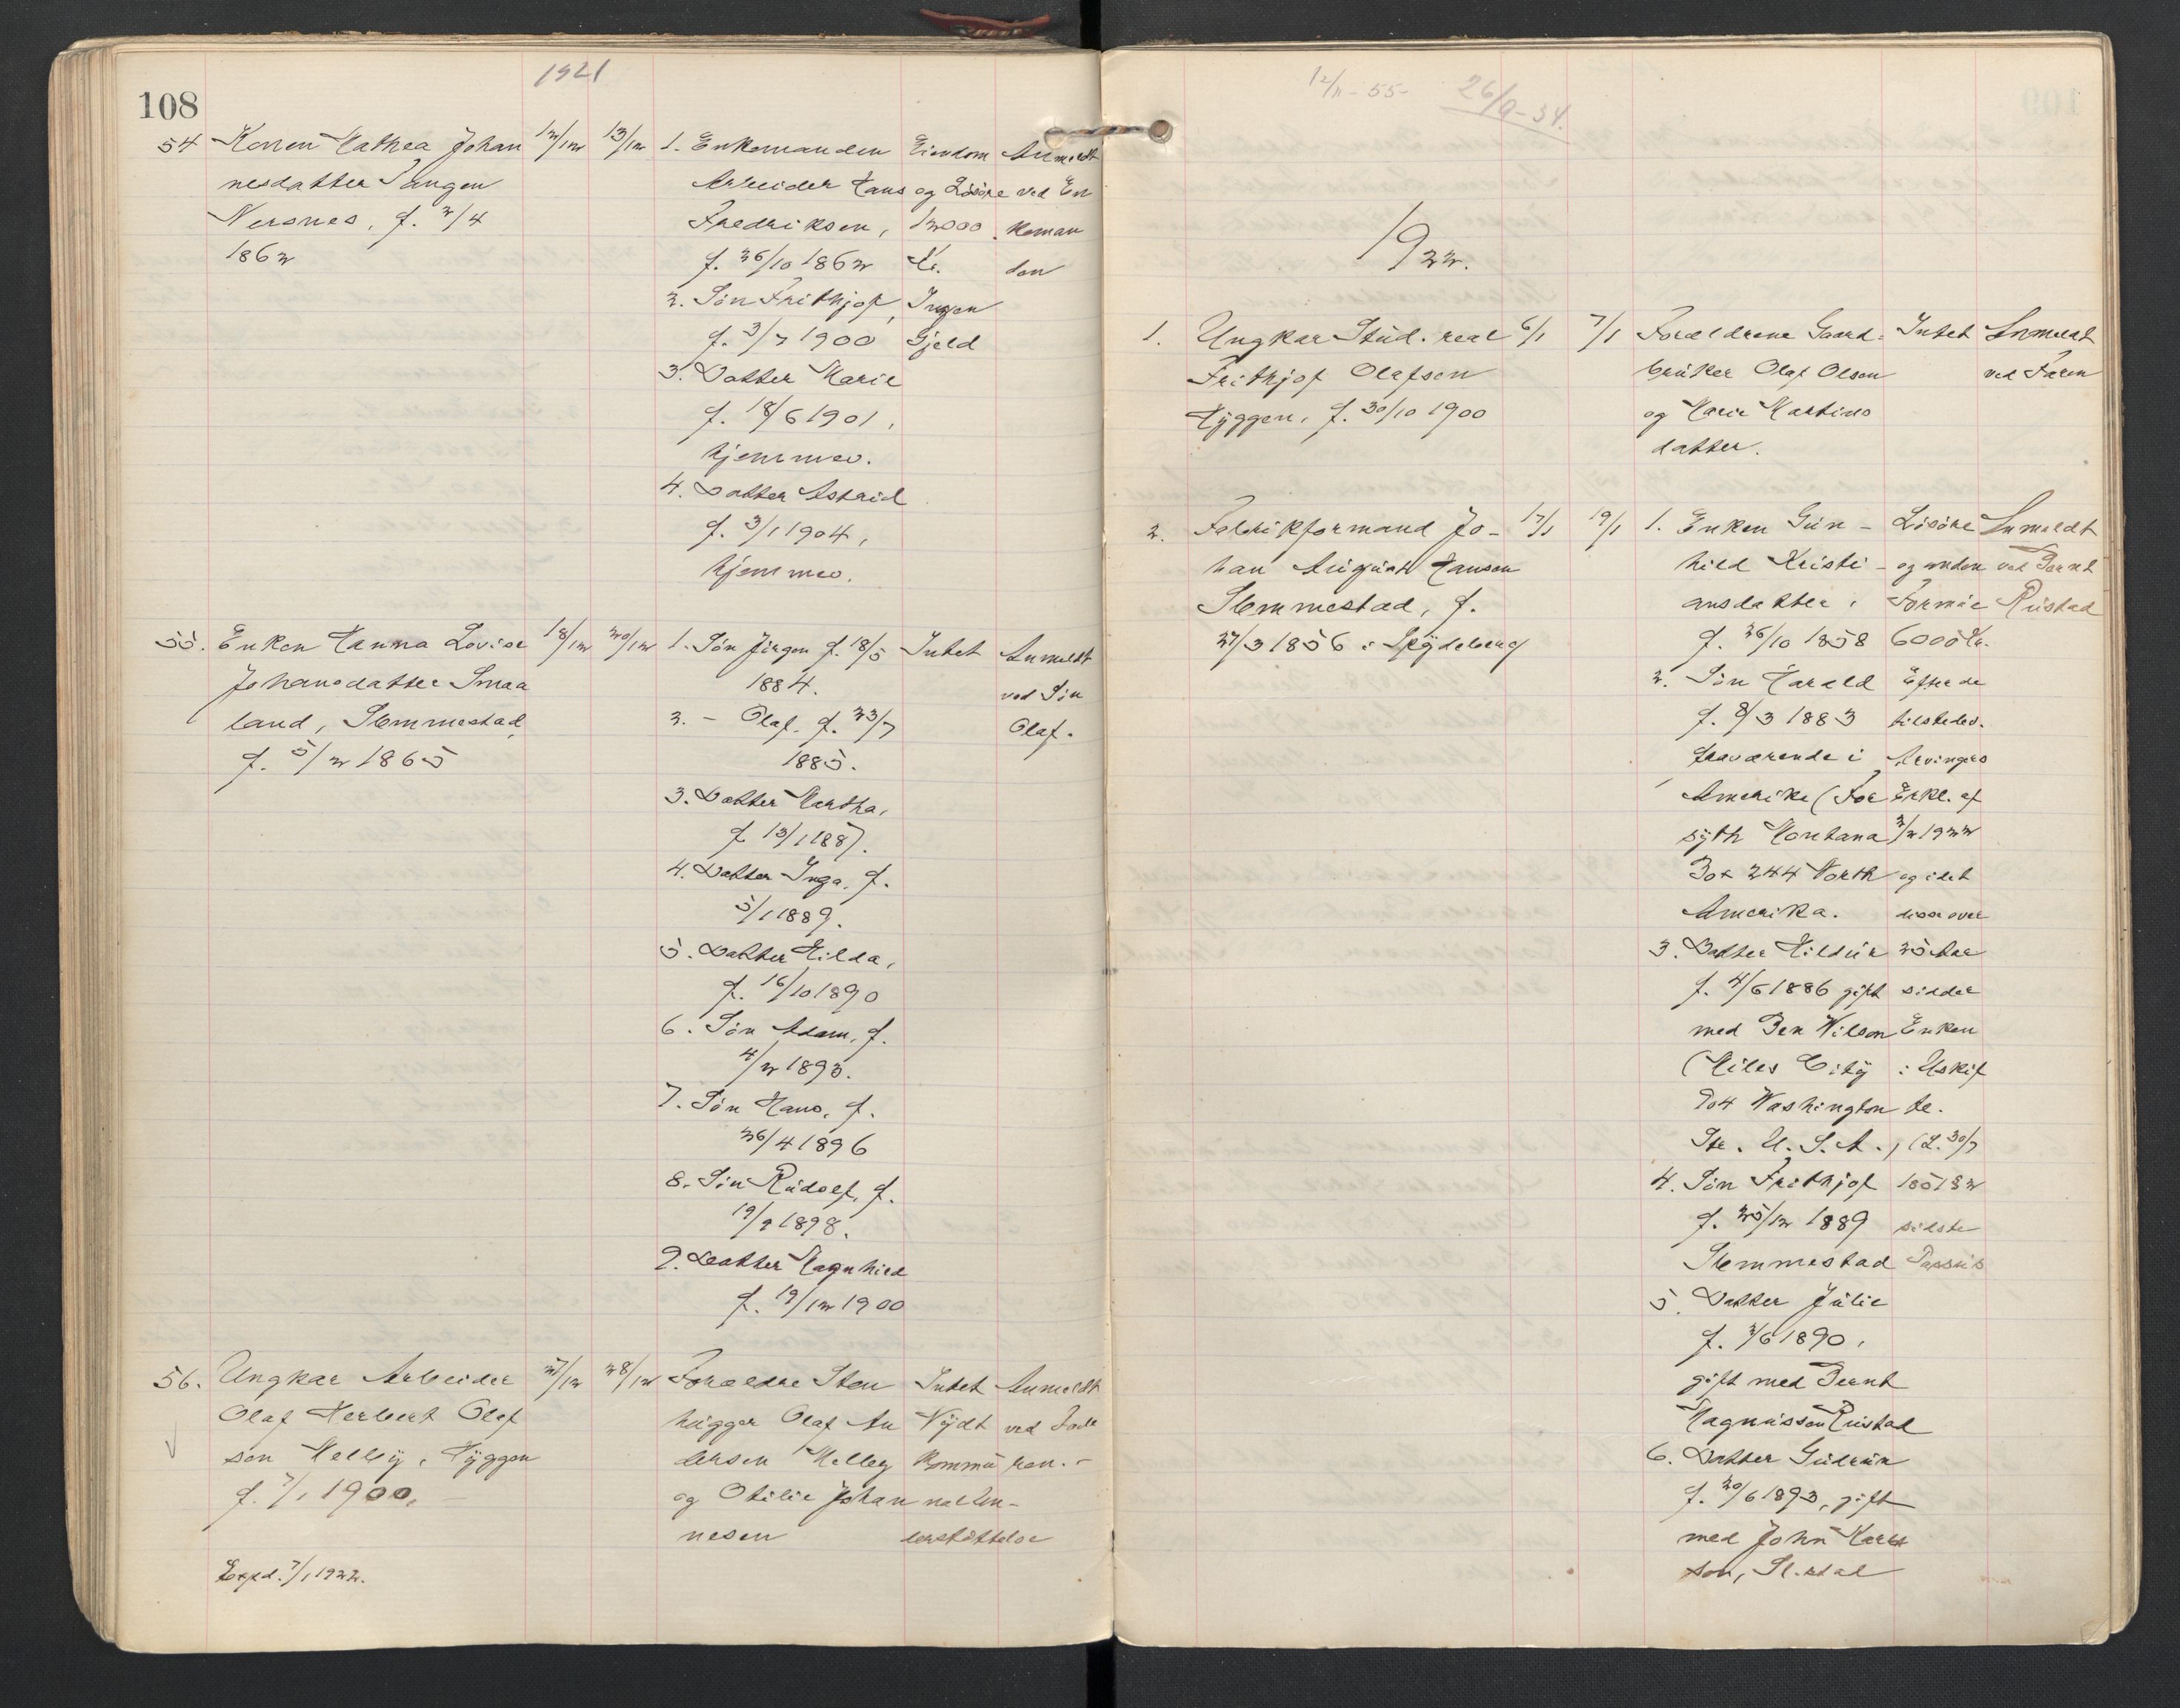 108
1921
54 Konen Mathea Johan
nesdatter Tangen
Nersnes, f. 2/4
1862
12/12
13/12
1. Enkemanden
Arbeider Hans
Fredriksen,
f. 26/10 1862
2. Søn Frithjof,
f. 3/7 1900
3. Datter Marie
f. 18/6 1901,
hjemmev.
4. Datter Astrid
f. 3/1 1904,
hjemmev.
Eiendom
og Løsøre
12000
Kr.
Ingen
Gjeld
Anmeldt
ved En
keman
den
55. Enken Hanna Lovise
Johansdatter Smaa
land, Slemmestad,
f. 5/2 1865
18/12
20/12
1. Søn Jørgen f. 18/5
1884.
2. - Olaf. f. 23/7
1885.
3. Datter Martha,
f. 13/1 1887.
4. Datter Inga, f.
5/1 1889.
5. Datter Hilda,
f. 16/10 1890
6. Søn Adam, f.
4/2 1893.
7. Søn Hans, f.
26/4 1896
8. Søn Rudolf, f.
19/9 1898.
9. Datter Magnhild
f. 19/12 1900
Intet
Anmeldt
ved Søn
Olaf.
56. Ungkar Arbeider
Olaf Herbert Olaf
sen Melby, Tyggen
f. 7/1 1900,
Expd. 7/1 1922.
27/12
28/12
Forældre Sten
hugger Olaf An
dersen Melby
og Otilie Johan
nesen
Intet
Nydt
Kommu
nal Un-
derstøttelse
Anmeldt
ved Fade
ren.-
12/11-55-
26/9-34.
1922.
1. Ungkar Stud. real
Frithjof Olafsen
Tyggen, f. 30/10 1900
6/1
7/1
Forældrene Gaard-
bruker Olaf Olsen
og Marie Martins
datter.
Intet
Anmeldt
ved Faren
2. Fabrikformand Jo-
han August Hansen
Slemmestad, f.
27/3 1856 i Spydeberg
17/1
19/1
1. Enken Gun-
hild Kristi-
ansdatter,
f. 26/10 1858
2. Søn Harald
f. 8/3 1883
fraværende i
Amerika (For
syth Montana
Box 244 North
Amerika.
3. Datter Hildur
f. 4/6 1886 gift
med Ben Wilson
(Miles City
704 Washington
Str. U.S.A.,
4. Søn Frithjof
f. 25/12 1889
Slemmestad
5. Datter Julie
f. 3/6 1890,
gift med Bernt
Magnussen Rustad
6. Datter Gudrun
f. 20/6 1893, gift
med John Karl
son, Sl.stad
Løsøre
og anden
Formue
6000 Kr.
Efter de
tilstedev.
Arvingers
Erkl. af
2/2 1922
og idet
disse over
25 Aar
sidder
Enken
i Uskif
te.
(L. 30/7
1851 § 2
sidste
Passus
Anmeldt
ved Bernt
Rustad